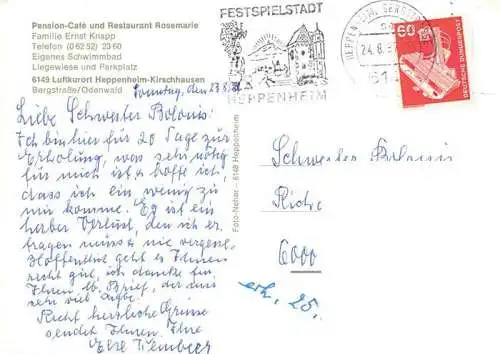 Pension-Café und Restaurant Rosemarie
Familie Ernst Knapp
Telefon (0 62 52) 23 60
Eigenes Schwimmbad
Liegewiese und Parkplatz
6149 Luftkurort Heppenheim-Kirschhausen
Bergstraße/Odenwald
Sonntag, den 23.8.
Liebe Schwester
Ich bin hier für 20 Tage zur
Erholung, was sehr nötig
für mich ist & hoffe ich
dass ich ein wenig zu
mir komme. Es ist ein
herber Verlust, den ich er-
tragen muss & nie vergesse.
Hoffentlich geht es Ihnen
recht gut, ich danke für
Ihren lb. Brief, der mir
sehr viel
Recht herzliche Grüsse
sendet Ihnen Ihre
Else
Foto-Neher – 6148 Heppenheim
FESTSPIELSTADT
HEPPENHEIM
24.8.
60
DEUTSCHE BUNDESPOST
Schwester
6000
erh. 25.